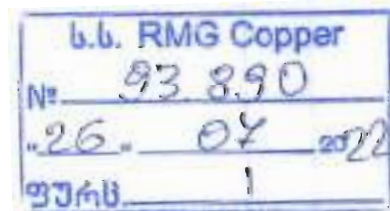 ს.ს. RMG Copper
№ 93 890
„26„ 07 2022
ფურც. 1